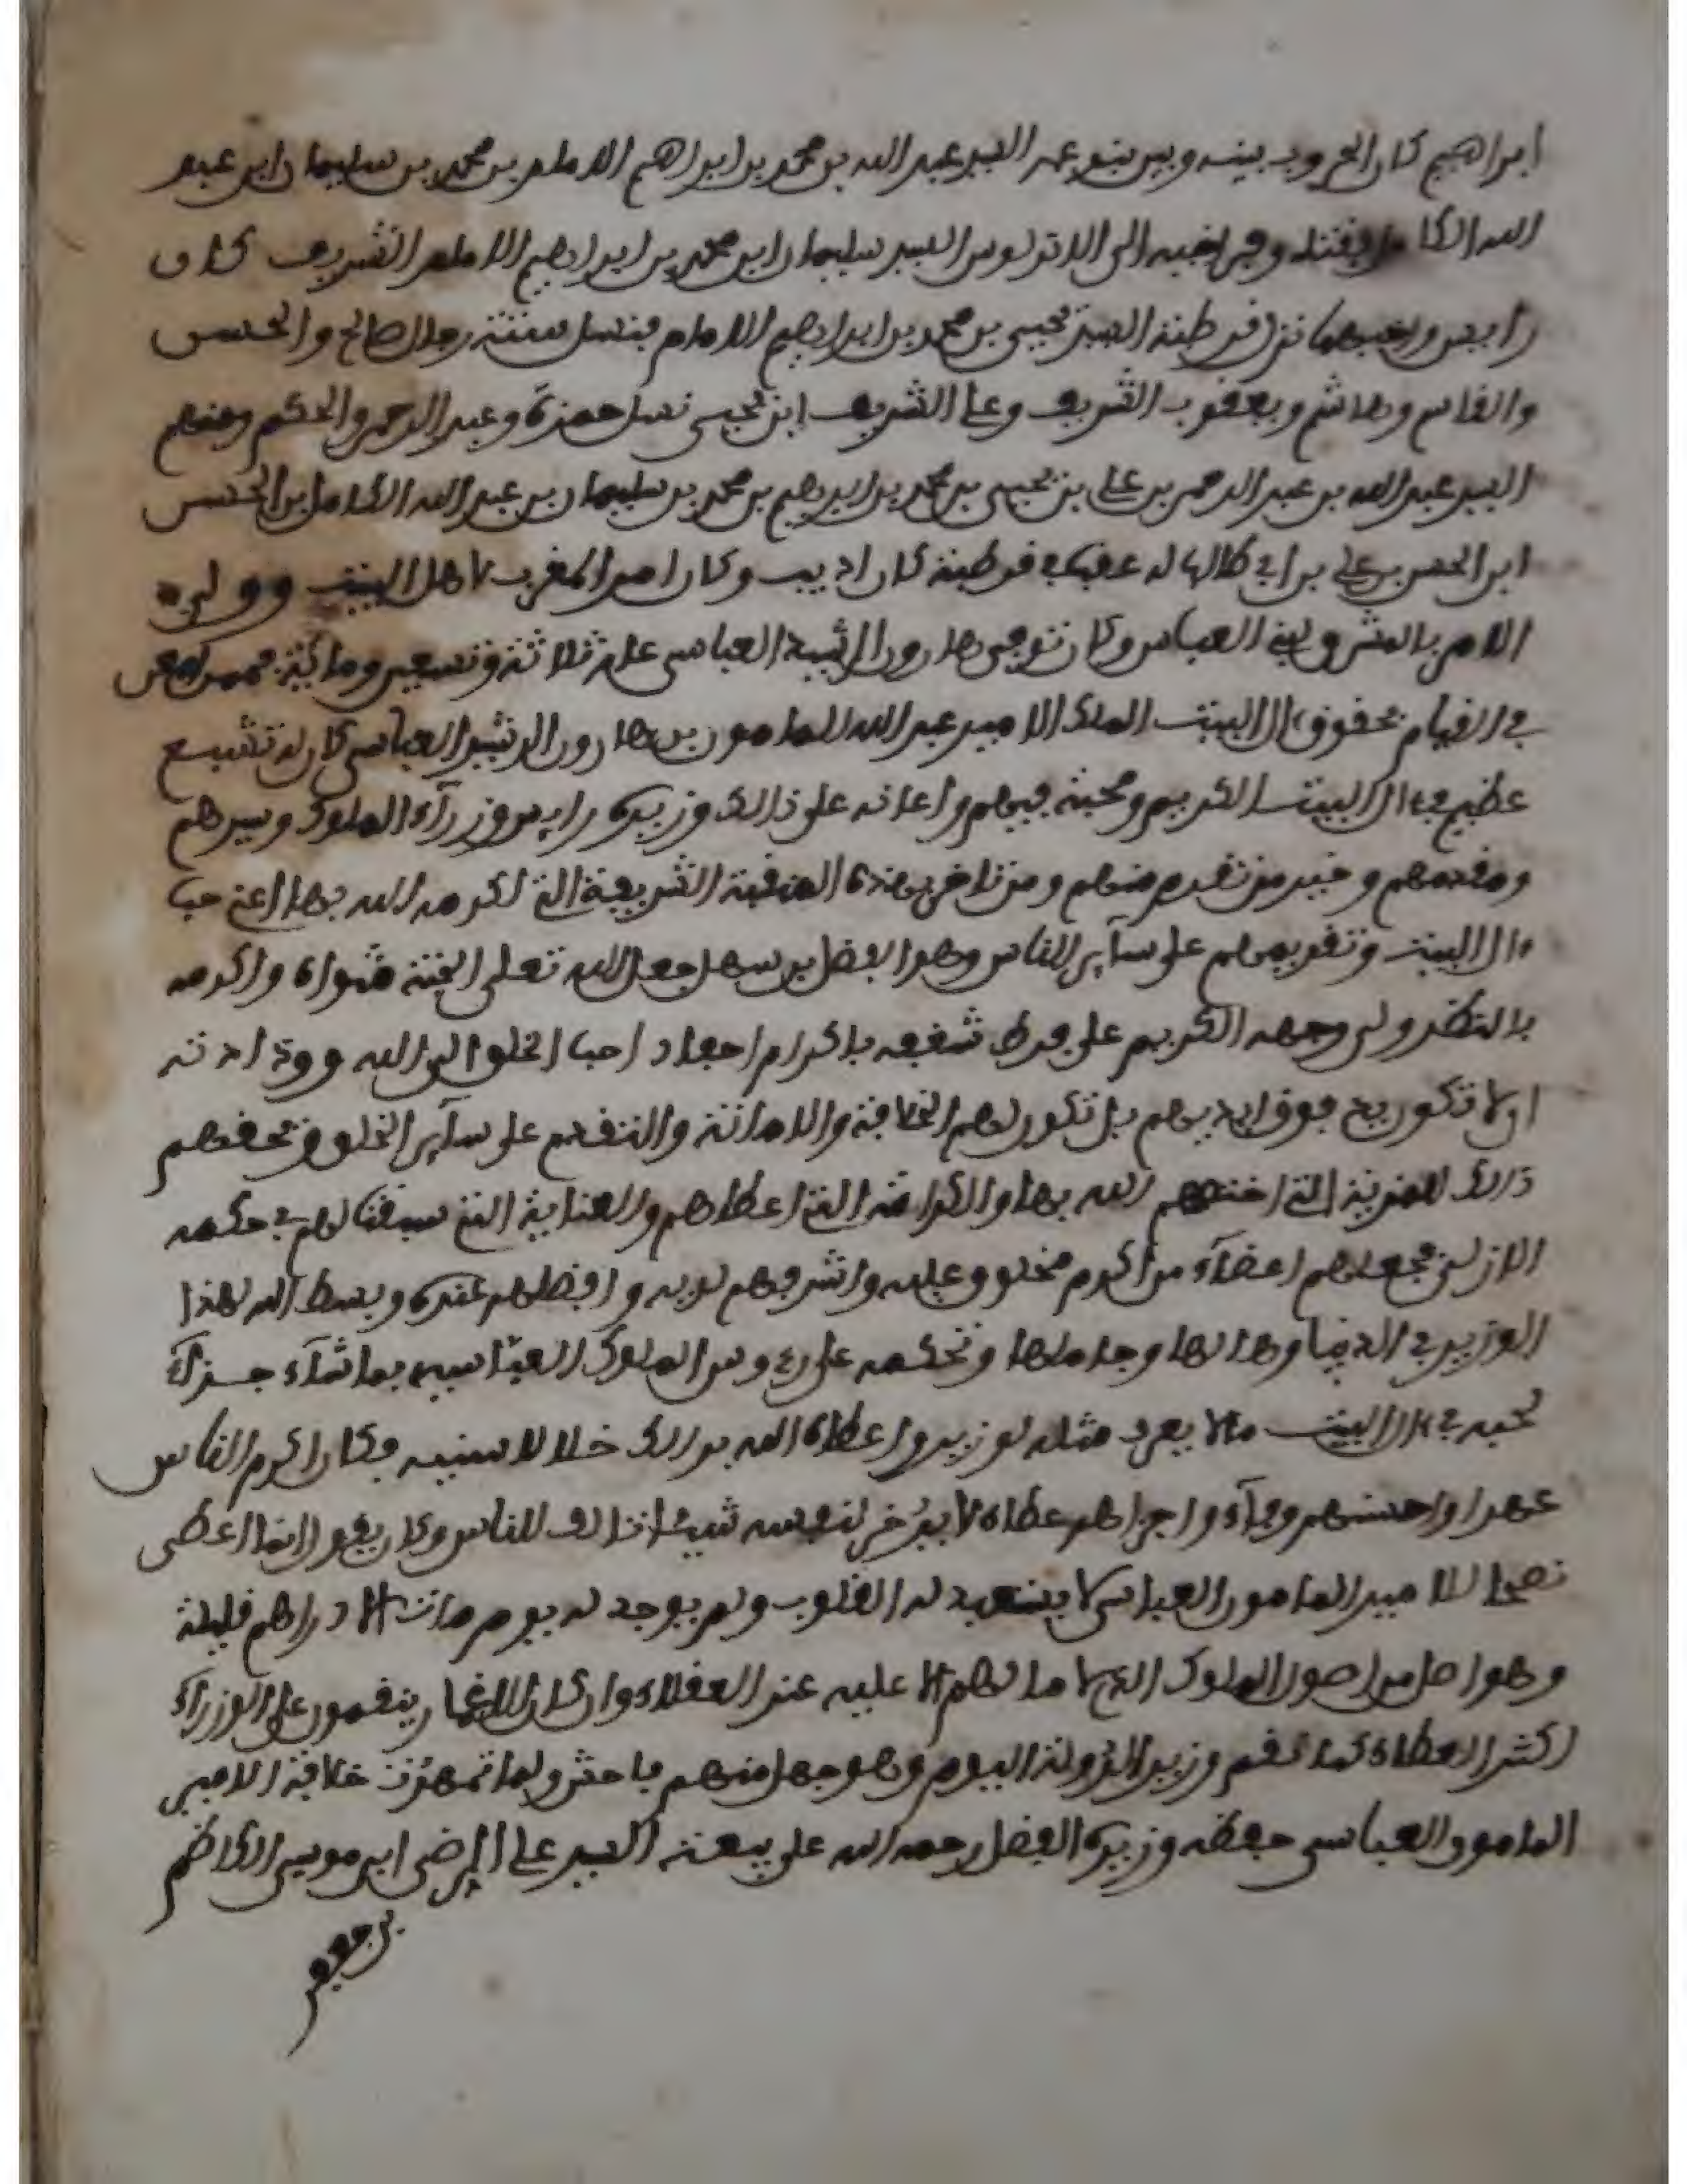 ابراهيم كان الحروب بينه وبين بنو عمه السيد عبد الله بن محمد بن ابراهيم الامام بن محمد بن سليمان ابن عبد
الله الكامل فقتله وفر اخيه الى الاندلوس السيد سليمان ابن محمد بن ابراهيم الامام الشريف كان
رايس واخيهما نزل قرطبة السيد يحيى بن محمد بن ابراهيم الامام فنسل ستة رجال صالح والحسن
والقاسم وهاشم ويعقوب الشريف وعلي الشريف ابن يحيى نسل حمزة وعبد الرحمن والحكم ومنهم
السيد عبد الله بن عبد الرحمن بن علي بن يحيى بن محمد بن ابراهيم بن محمد بن سليمان بن عبد الله الكامل بن الحسن
ابن الحسن بن علي بن ابي طالب له عقب في قرطبة كان اديب وكان امر المغرب لاهل البيت وولي
الامر بالمشرق لبني العباس وكان توفي هارون الرشيد العباسي عام ثلاثة وتسعين ومائة فممن
في القيام بحقوق ءال البيت الملك الامير عبد الله المامون بن هارون الرشيد العباسي كان له تشيع
عظيم في ءال البيت الكريم ومحبة فيهم واعانه على ذالك وزيره راس وزراء الملوك وسيدهم
ومقدمهم وخير من تقدم منهم ومن تاخر بهذه المنقبة الشريفة التي اكرمه الله بها اعني حب
ءال البيت وتقديمهم على ساير الناس وهو الفضل بن سهل جعل الله تعلى الجنة مثواه واكرمه
بالنظر الى وجهه الكريم على فرط شغفه باكرام احفاد احب الخلق الى الله وودادته
ان لا تكون يد فوق ايديهم بل تكون لهم الخلافة والامانة والتقديم على ساير الخلق وبحقهم
ذالك للمزية التي اختصهم الله بها والكرامة التي اعطاهم والعناية التي سبقت لهم في حكمه
الازلي فجعلهم اعضاء من اكرم مخلوق عليه واشرفهم لديه وافضلهم عنده وبسط الله لهذا
الوزير في الدنيا وهالها وجاهلها وتحكمه على رءوس الملوك العباسيين بما شاء جزاء
لحبه في ءال البيت ما لا يعرف مثله لوزير واعطاه الله بذالك خلالا سنية فكان اكرم الناس
عهدا واحسنهم وفاء واجراهم عطاء لا يدخر لنفسه شيئا انالف للناس وكان يقول انما اعطي
نصحا للامير المامون العباسي لا يستعبد له القلوب ولم يوجد له يوم مات الا دراهم قليلة
وهو اصل من اصول الملوك الذي لا مدا لهم الا عليه عند العقلاء وان كان الاغمار ينقمون على الوزراء
كثير العطاء كما نقم وزير الدولة اليوم وهو جهل منهم فاحش ولما تمهدت خلافة الامير
المامون العباسي حفظه وزيره الفضل رحمه الله على بيعة السيد علي الرضى ابن موسى الكاظم
بن جعفر